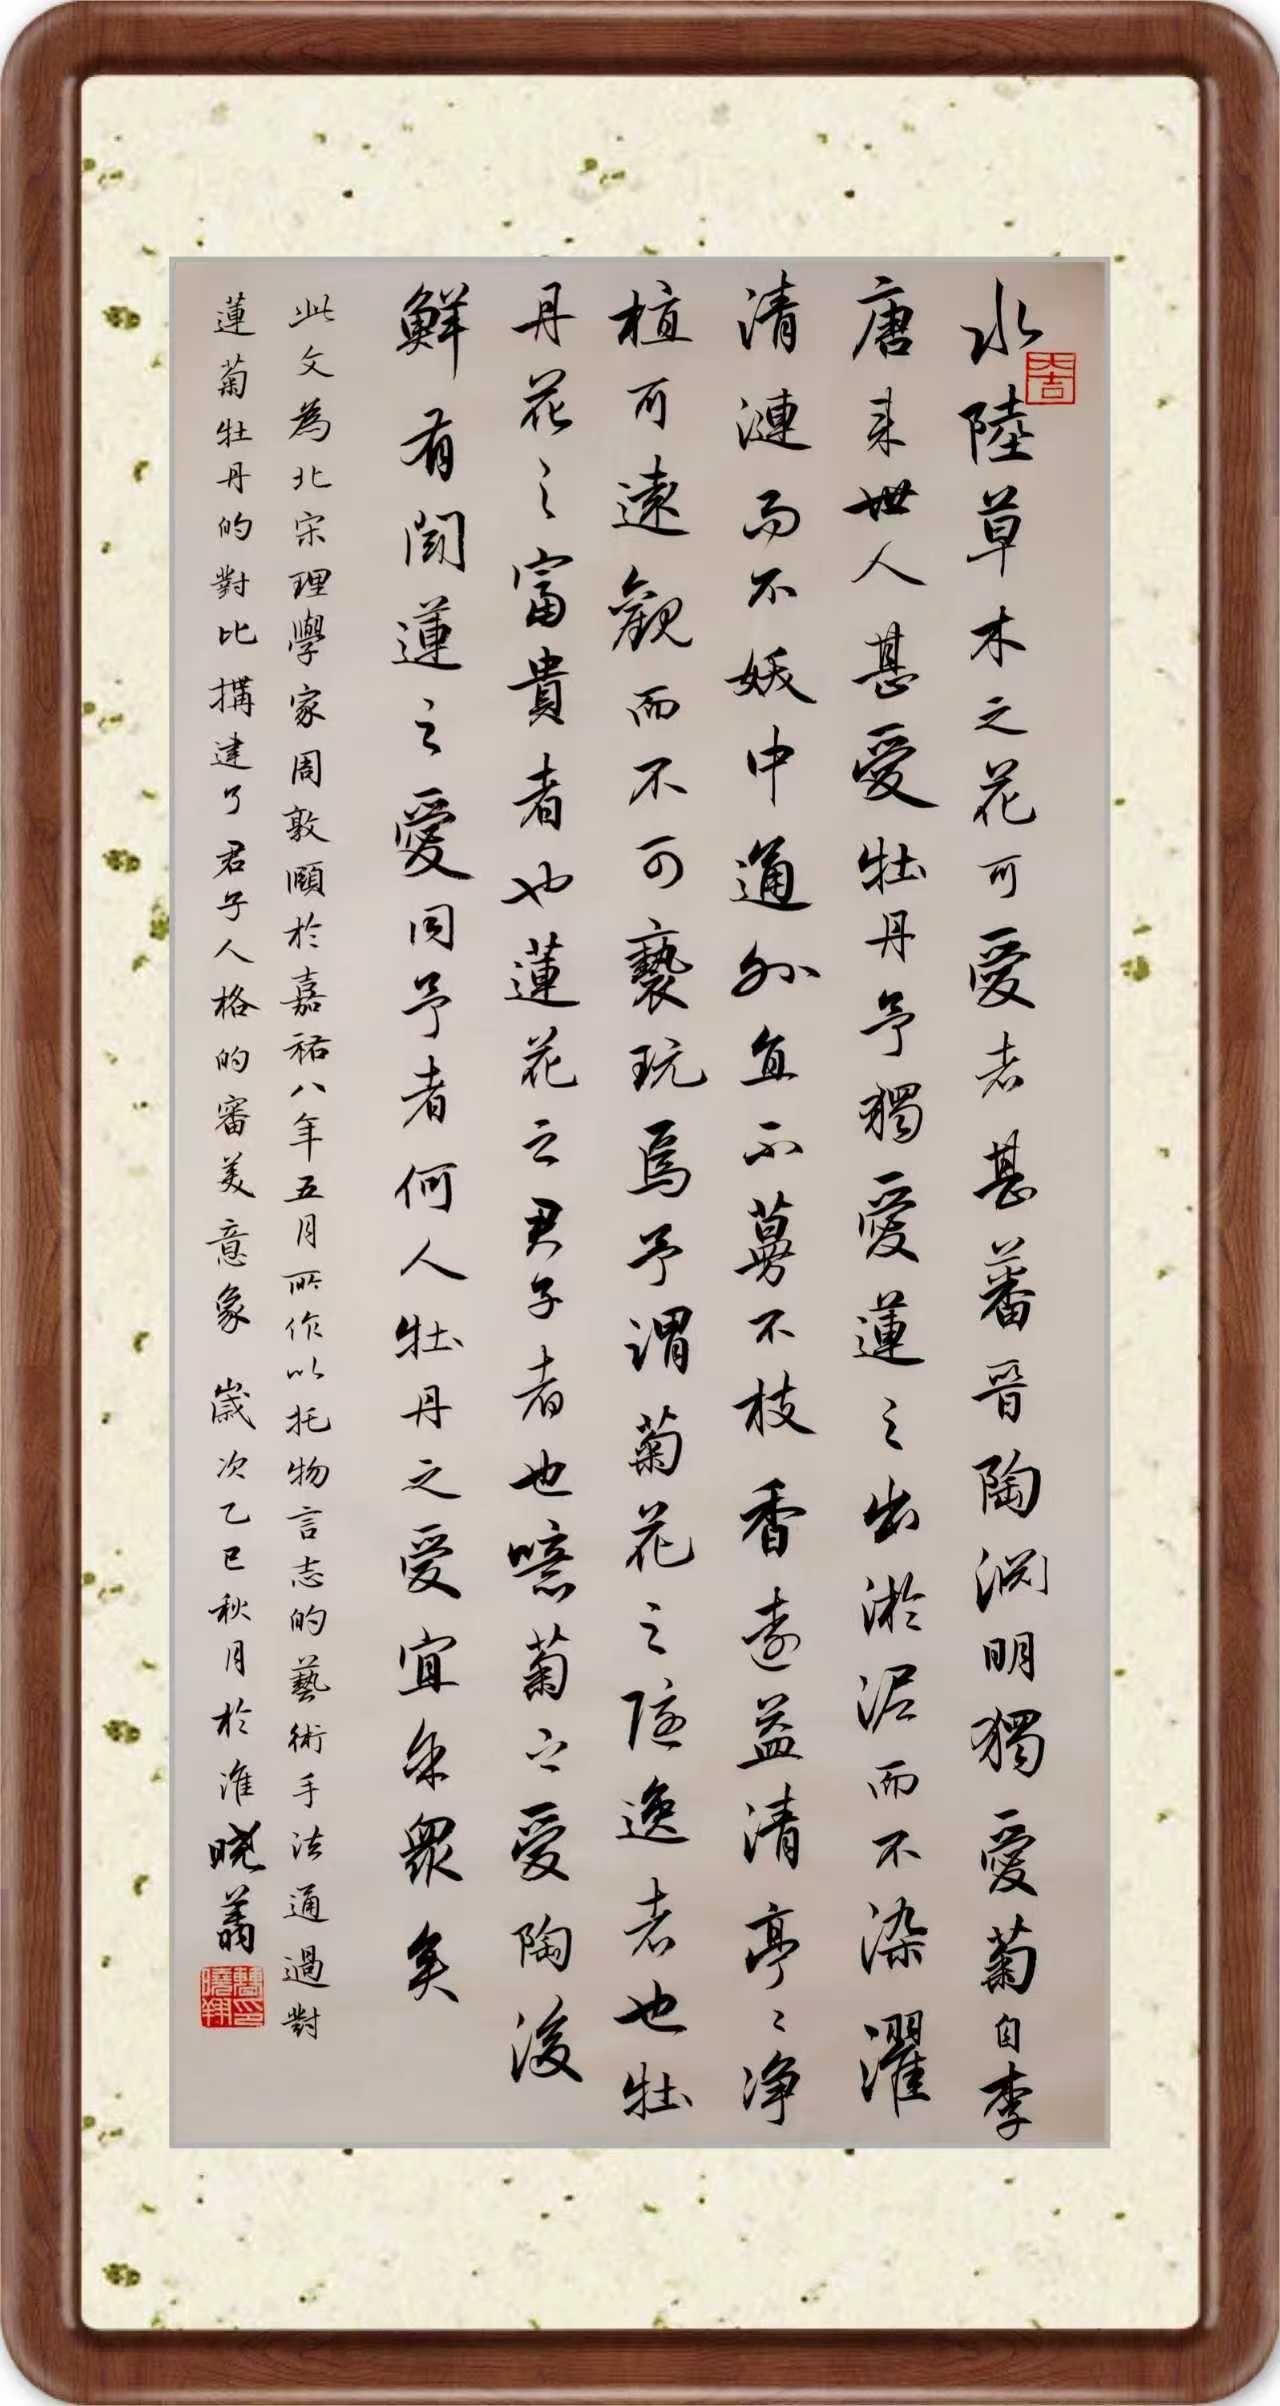 水陸草木之花可愛者甚蕃晉陶淵明獨愛菊自李
唐来世人甚愛牡丹予獨愛蓮之出淤泥而不染濯
清漣而不妖中通外直不蔓不枝香遠益清亭〻净
植可遠觀而不可褻玩焉予謂菊花之隱逸者也牡
丹花之富貴者也蓮花之君子者也噫菊之愛陶後
鮮有聞蓮之愛同予者何人牡丹之愛宜乎眾矣
此文為北宋理學家周敦頤於嘉祐八年五月所作以托物言志的藝術手法通過對
蓮菊牡丹的對比搆建了君子人格的審美意象 歲次乙巳秋月於淮曉翥
大吉